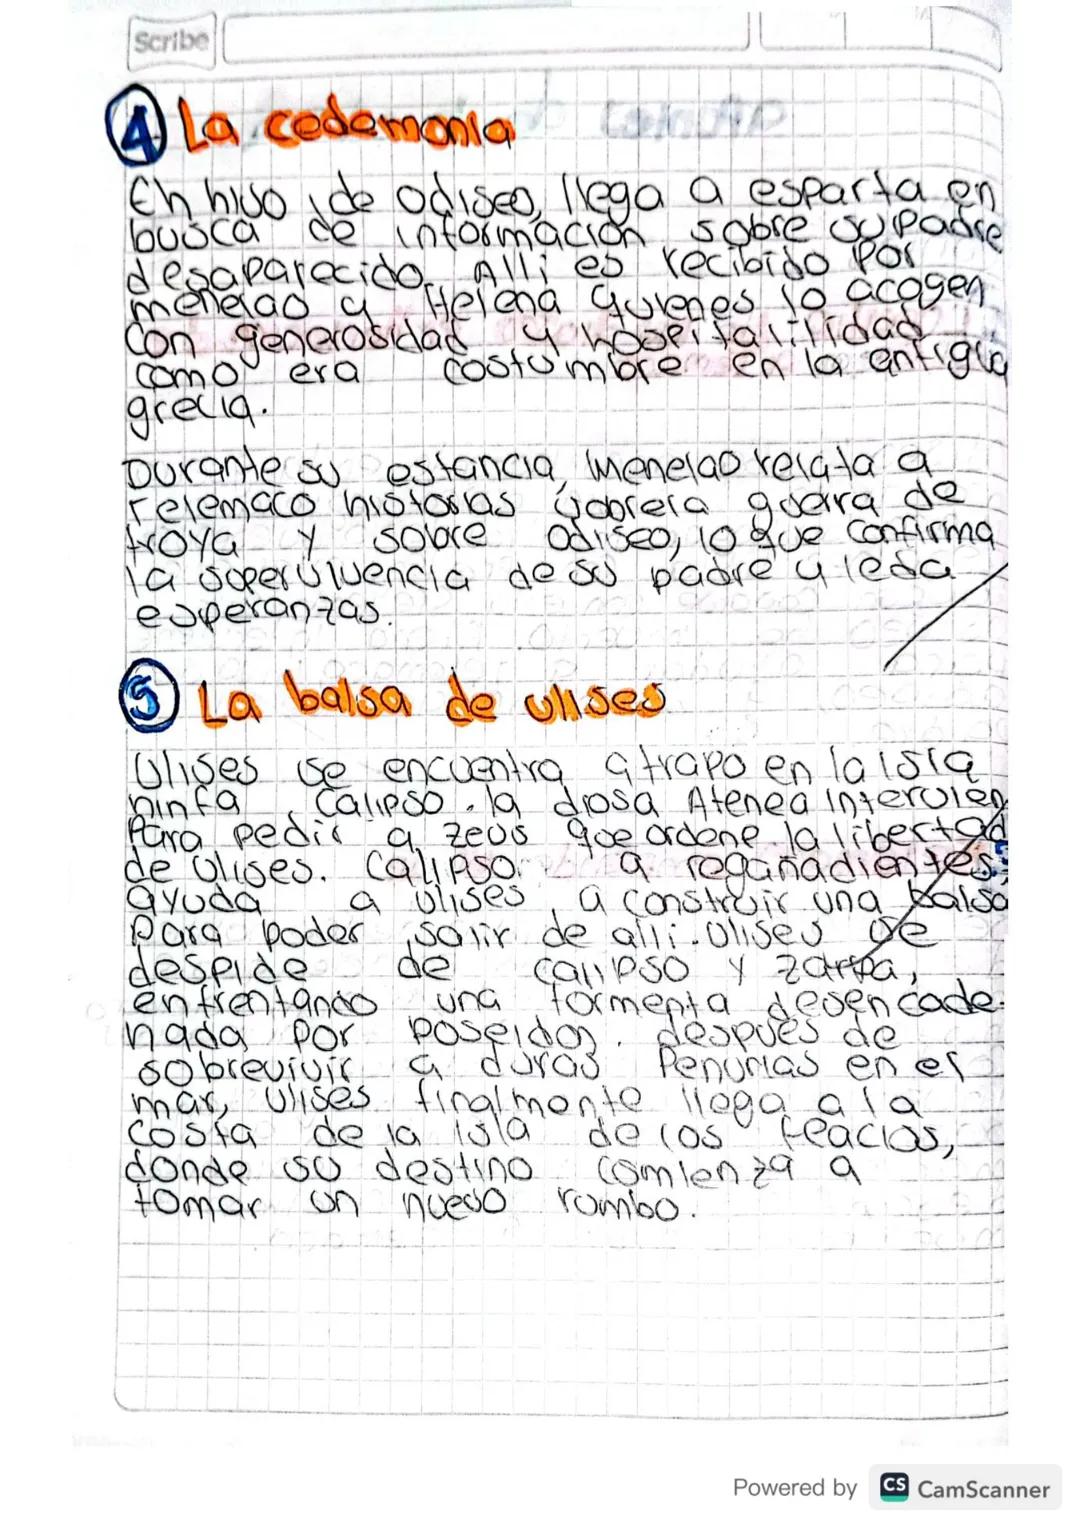 Scribe
4 La cedemonia
Eh hijo de odiseo, llega a esparta en
busca de información sobre su padre
desaparecido. Alli es recibido por
menelao y Helena quienes lo acogen
con generosidad y hospitalilidad
como era costumbre en la antigua
grecia.
Durante su estancia, menelao relata a
Telemaco historias sobrela guerra de
troya y sobre odiseo, lo que confirma
la superviuencia de su padre y leda
esperanzas.
5 La balsa de ulises
Ulises se encuentra atrapo en la isla
ninfa Calipso. la diosa Atenea intervien
Para pedir a zeus que ordene la libertad
de ulises. Calipso a regañadientes,
ayuda a ulises a construir una balsa
para poder salir de alli. Ulises se
despide de calipso y zarpa,
enfrentando una tormenta desencade-
nada por poseidon. después de
sobrevivir a duras Penurias en el
mar, Ulises finalmente llega a la
costa de la isla de los feacios,
donde su destino comienza a
tomar un nuevo rumbo.
Powered by CS CamScanner